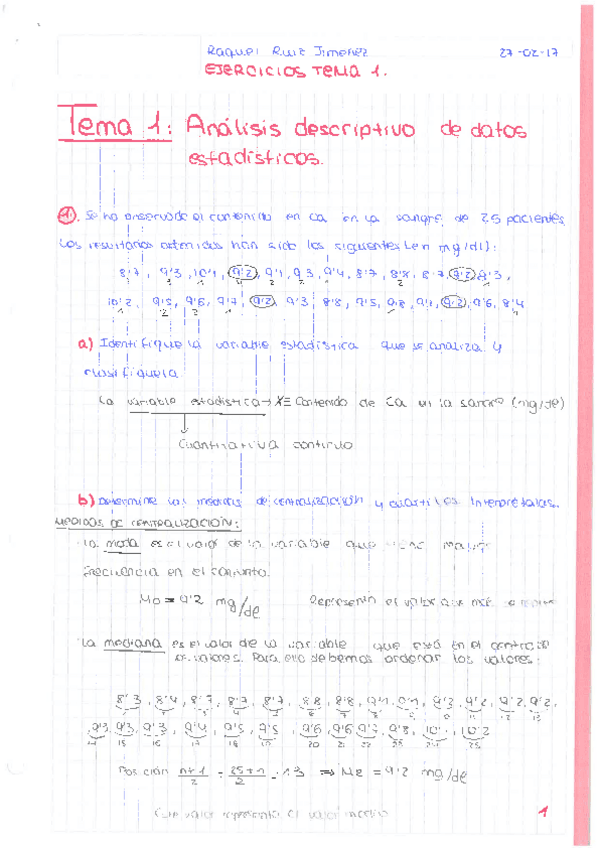 Raquel Ruiz Jimenez 27-02-17
EJERCICIOS TEMA 1.
Tema 1: Análisis descriptivo de datos
estadísticos.
1. Se ha observado el contenido en Ca en la sangre de 25 pacientes
Los resultados obtenidos han sido los siguientes (en mg/dl):
8'7, 9'3, 10'1, 9'2, 9'1, 9'3, 9'4, 8'7, 8'8, 8'7, 9'2, 8'3,
10'2, 9'5, 9'6, 9'7, 9'2, 9'3, 8'8, 9'5, 9'8, 9'1, 9'2, 9'6, 8'4
a) Identifique la variable estadística que se analiza y
clasifíquela
La variable estadística → X ≡ Contenido de Ca en la sangre (mg/dl)
Cuantitativa continuo
b) Determine las medidas de centralización y cuartiles. Interprétalas.
MEDIDAS DE CENTRALIZACIÓN:
La moda es el valor de la variable que mayor
frecuencia en el conjunto.
Mo = 9'2 mg/dl Representa el valor que más se
La mediana es el valor de la variable que está en el centro de
valores. Para ello debemos ordenar los valores:
8'3, 8'4, 8'7, 8'7, 8'7, 8'8, 8'8, 9'1, 9'1, 9'2, 9'2, 9'2, 9'2,
9'3, 9'3, 9'3, 9'4, 9'5, 9'5, 9'6, 9'6, 9'7, 9'8, 10'1, 10'2
Posición n+1/2 = 25+1/2 = 13 ⇒ Me = 9'2 mg/dl
Este valor representa el valor medio
1